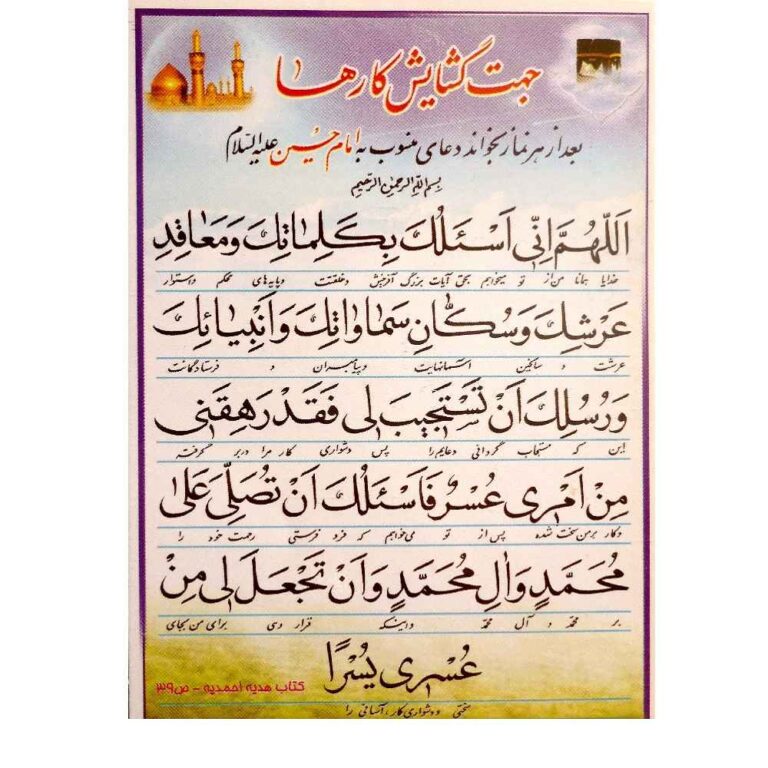 جهت گشایش کارها
بعد از هر نماز بخواند دعای منسوب به امام حسین علیه السلام
بسم الله الرحمن الرحیم
اَللّهُمَّ اِنّی اَسْئَلُکَ بِکَلِماتِکَ وَمَعاقِدِ
خدایا همانا من از تو میخواهم بحق آیات بزرگ آفرینش و خلقتت و پایه‌های محکم و استوار
عَرْشِکَ وَسُکّانِ سَماواتِکَ وَاَنْبِیائِکَ
عرشت و ساکنین آسمانهایت و پیامبران و فرستادگانت
وَرُسُلِکَ اَنْ تَسْتَجیبَ لی فَقَدْ رَهِقَنی
این که مستجاب گردانی دعایم را پس دشواری کار مرا در بر گرفته
مِنْ اَمْری عُسْرٌ فَاَسْئَلُکَ اَنْ تُصَلِّیَ عَلی
و کار بر من سخت شده پس از تو می‌خواهم که فرو فرستی رحمت خود را
مُحَمَّدٍ وَالِ مُحَمَّدٍ وَاَنْ تَجْعَلَ لی مِنْ
بر محمد و آل محمد و اینکه قرار دهی برای من بجای
عُسْری یُسْرًا
سختی و دشواری کار، آسانی را
کتاب هدیه احمدیه - ص۳۹